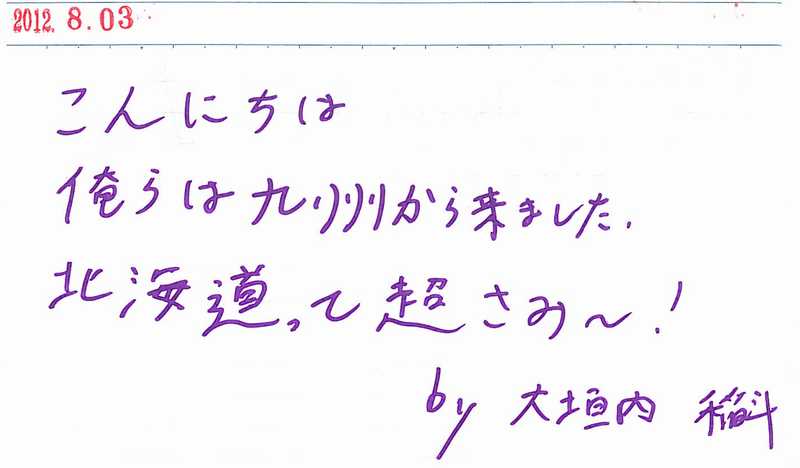 2012. 8. 03
こんにちは
俺らは九州から来ました.
北海道って超さみ〜!
by 大垣内